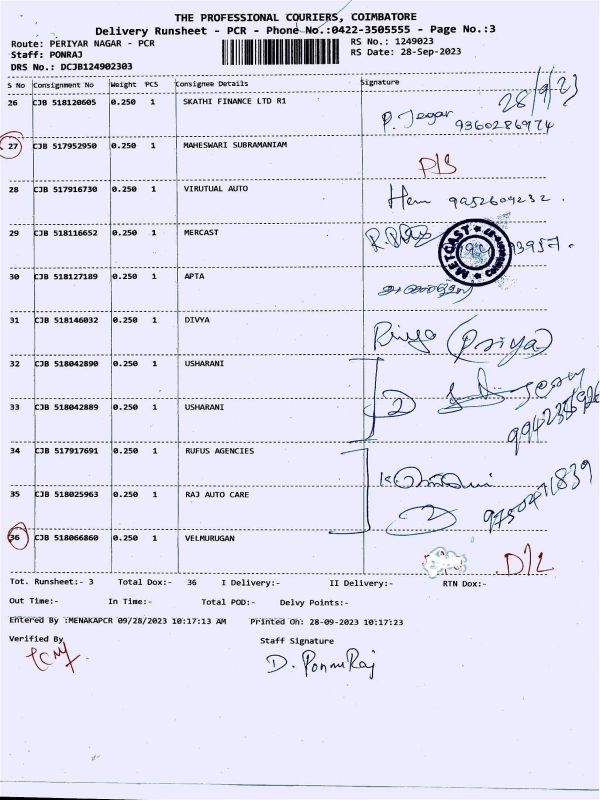 THE PROFESSIONAL COURIERS, COIMBATORE
Delivery Runsheet - PCR - Phone No.:0422-3505555 - Page No.:3
Route: PERIYAR NAGAR - PCR
RS No.: 1249023
Staff: PONRAJ
RS Date: 28-Sep-2023
DRS No.: DCJB124902303
S No Consignment No Weight PCS Consignee Details Signature
28/9/23
26 CJB 518120605 0.250 1 SKATHI FINANCE LTD R1
P. Jegar
9360286974
27 CJB 517952950 0.250 1 MAHESWARI SUBRAMANIAM
D/S
28 CJB 517916730 0.250 1 VIRUTUAL AUTO
Hem 9952609232.
29 CJB 518116652 0.250 1 MERCAST
METCAST
30 CJB 518127189 0.250 1 APTA
31 CJB 518146032 0.250 1 DIVYA
Priya (Priya)
32 CJB 518042890 0.250 1 USHARANI
33 CJB 518042889 0.250 1 USHARANI
2
34 CJB 517917691 0.250 1 RUFUS AGENCIES
35 CJB 518025963 0.250 1 RAJ AUTO CARE
2
9750471839
36 CJB 518066860 0.250 1 VELMURUGAN
D/L
Tot. Runsheet:- 3 Total Dox:- 36 I Delivery:- II Delivery:- RTN Dox:-
Out Time:- In Time:- Total POD:- Delvy Points:-
Entered By :MENAKAPCR 09/28/2023 10:17:13 AM Printed On: 28-09-2023 10:17:23
Verified By Staff Signature
D. PonnuRaj